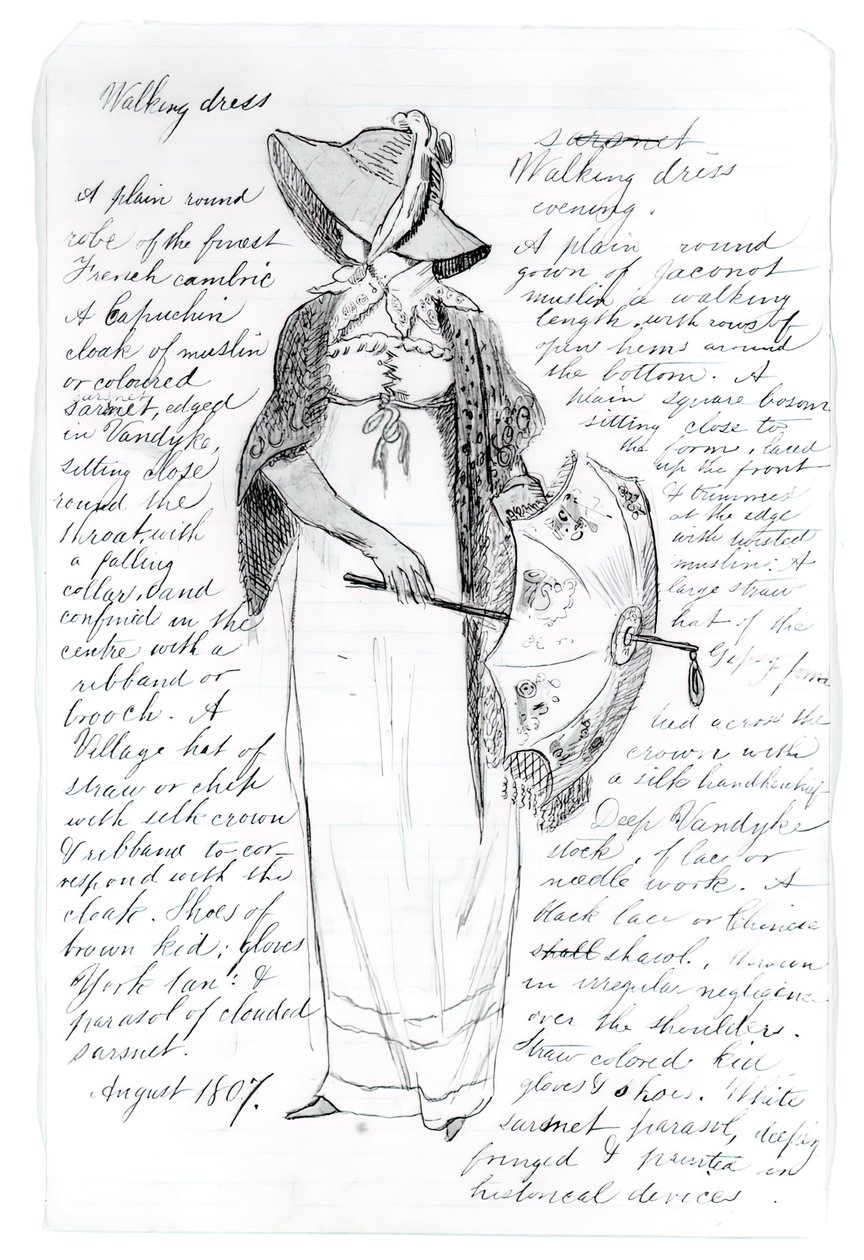 Walking dress
A plain round
robe of the finest
French cambric
A Capuchin
cloak of muslin
or coloured
sarsnet
sarsnet, edged
in Vandyke,
sitting close
round the
throat with
a falling
collar, and
confined in the
centre with a
ribband or
brooch. A
Village hat of
straw or chip
with silk crown
& ribband to cor-
respond with the
cloak. Shoes of
brown kid; gloves
York tan: &
parasol of clouded
sarsnet.
August 1807.
sarsnet
Walking dress
evening.
A plain round
gown of Jaconot
muslin a walking
length, with rows of
open hems around
the bottom. A
plain square bosom
sitting close to
the form, laced
up the front
& trimmed
at the edge
with twisted
muslin: A
large straw
hat of the
Gipsy form
tied across the
crown with
a silk handkerchief
Deep Vandyke
stock, of lace or
needle work. A
black lace or Chinese
shall shawl, thrown
in irregular negligence
over the shoulders.
Straw colored kid
gloves & shoes. White
sarsnet parasol, deeply
fringed & painted in
historical devices.